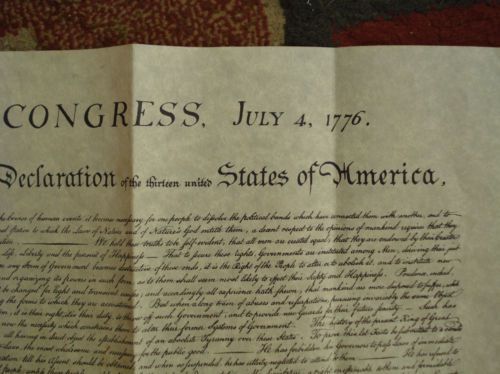 CONGRESS, JULY 4, 1776.
Declaration of the thirteen united States of America,
human events it becomes necessary for one people to dissolve the political bands which have connected them with another, and to
and of Nature's God entitle them, a decent respect to the opinions of mankind requires that they
We hold these truths to be self-evident, that all men are created equal, that they are endowed by their
Life, Liberty and the pursuit of Happiness. — That to secure these rights, Governments are instituted among Men, deriving their just
any Form of Government becomes destructive of these ends, it is the Right of the People to alter or to abolish it, and to institute new
and organizing its powers in such form, as to them shall seem most likely to effect their Safety and Happiness. Prudence, indeed,
be changed for light and transient causes; and accordingly all experience hath shewn, that mankind are more disposed to suffer, while
the forms to which they are But when a long train of abuses and usurpations, pursuing invariably the same Object
it is their right, it is their duty, to throw off such Government, and to provide new Guards for their future security. — Such has
now the necessity which constrains them to alter their former Systems of Government. The history of the present King of Great
all having in direct object the establishment of an absolute Tyranny over these States. To prove this, let Facts be submitted to a candid
the most wholesome and necessary for the public good. — He has forbidden his Governors to pass Laws of immediate
till his Assent should be obtained; and when so suspended, he has utterly neglected to attend to them. — He has refused to